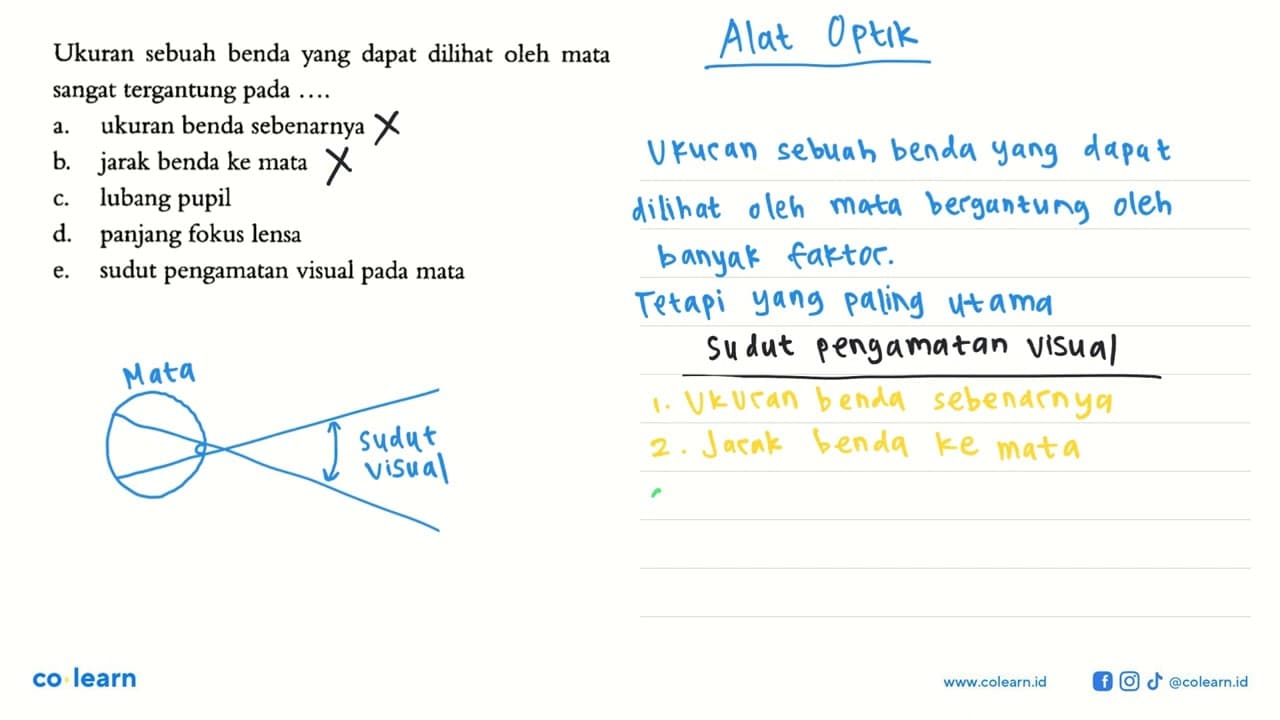 Ukuran sebuah benda yang dapat dilihat oleh mata
sangat tergantung pada ....
a. ukuran benda sebenarnya X
b. jarak benda ke mata X
c. lubang pupil
d. panjang fokus lensa
e. sudut pengamatan visual pada mata
Mata
sudut
visual
Alat Optik
Ukuran sebuah benda yang dapat
dilihat oleh mata bergantung oleh
banyak faktor.
Tetapi yang paling utama
sudut pengamatan visual
1. Ukuran benda sebenarnya
2. Jarak benda ke mata
co learn
www.colearn.id
@colearn.id